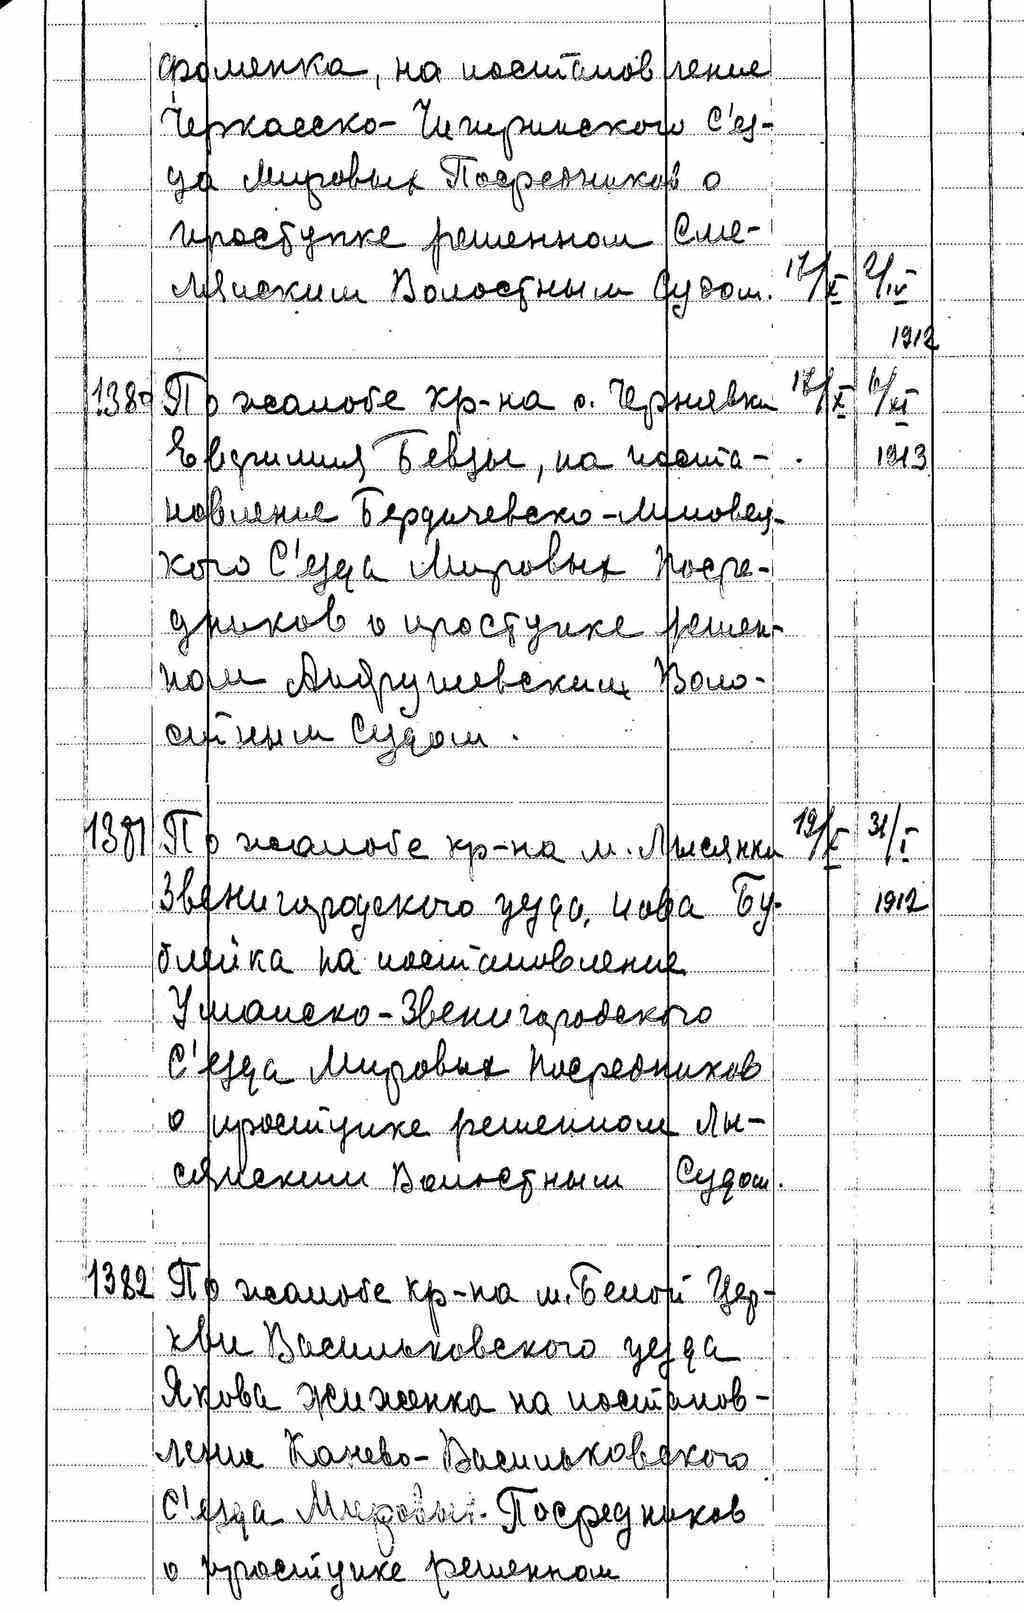 фоменка, на постановление
Черкасско-Чигиринского С'ез-
да Мировых Посредников о
проступке решенном Сме-
лянским Волостным Судом. 17/X 2/IV
1912
1380 По жалобе кр-на с. Чернявки 17/X /XI
Евфимия Бевзы, на поста- 1913
новление Бердичевско-Липовец-
кого С'езда Мировых Посре-
дников о проступке решен-
ном Андрушевским Воло-
стным Судом.
1381 По жалобе кр-на м. Лысянки 19/X 31/I
Звенигородского уезда, Иова Бу- 1912
блейка на постановление
Уманско-Звенигородского
С'езда Мировых Посредников
о проступке решенном Лы-
сянским Волостным Судом.
1382 По жалобе кр-на м. Белой Цер-
кви Васильковского уезда
Якова Жиженка на постанов-
ление Канево-Васильковского
С'езда Мировых Посредников
о проступке решенном